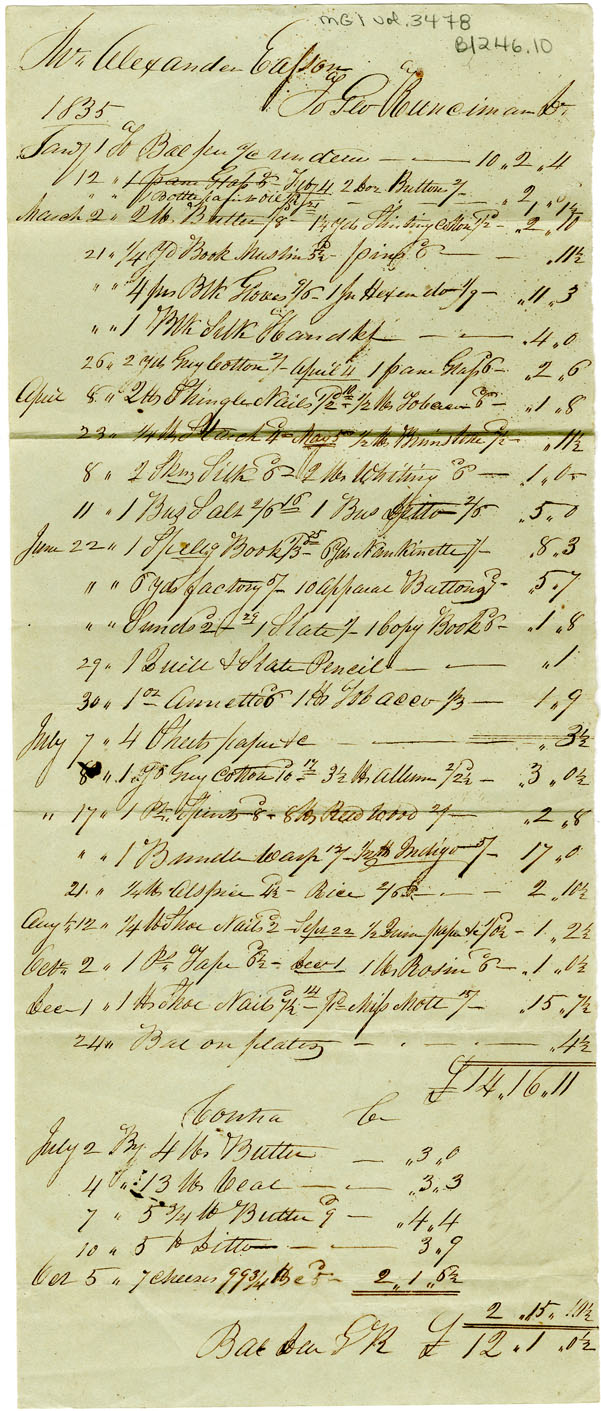 MG1 Vol. 3478
B1246.10
Mr. Alexander Easson
To Geo Runciman Dr
1835
Jany 1 To Bal per a/c rendern 10 „ 2 „ 4
12 „ 1 pane Glass 2 doz Buttons
March 2 „ 2 lb Butter /8 1 1/4 yds Shirting Cotton „ 2 „ 10
21 „ 1/4 yd Book Muslin pins 6 „ 11 1/2
„ „ 4 prs Blk Gloves 2/6 1 pr 1/9 „ 11 „ 3
„ „ 1 Blk Silk Handkf „ 4 „ 0
26 „ 2 yds Grey Cotton 2/ April 4 1 pane Glass 6 „ 2 „ 6
April 8 „ 2 lbs Shingle Nails 1/2 lb Tobacco 6 „ 1 „ 8
23 „ 1/4 lb Starch May 5 1/2 lb Brimstone „ 11 1/2
8 „ 2 Skns Silk 6 2 lbs Whiting 6 1 „ 0
11 „ 1 Bus Salt 2/6 16 1 Bus Ditto 2/6 „ 5 „ 0
June 22 „ 1 Spellg Book 1/3 25 Nankinette „ 8 „ 3
„ „ 6 yds factory 5/ 10 Buttons „ 5 „ 7
„ „ Sunds 2 29 1 Slate 1/ 1 Copy Book 6 „ 1 „ 8
29 „ 1 Quill & Slate Pencil „ 1
30 „ 1 oz Annetto 6 1 lb Tobacco 1/3 1 „ 9
July 7 „ 4 Sheets paper &c „ 3 1/2
8 „ 1 yd Grey Cotton 10 17 3 1/2 lbs Allum 2/2 1/2 „ 3 „ 0 1/2
„ 17 „ 1 Pt Spirits 8 8 lbs Red Wood 2/ „ 2 „ 8
„ „ 1 Bundle Warp 12/ 1/2 lb Indigo 5/ 17 „ 0
21 „ 1/4 lb Alspice Rice 2/6 2 „ 10 1/2
Augt 12 „ 1/4 lb Shoe Nails 2 Sept 22 1/2 Quire paper 1 „ 2 1/2
Octr 2 „ 1 Ps Tape 6 1/2 Decr 1 1 lb Rosin 6 „ 1 „ 0 1/2
Dec 1 „ 1 lb Shoe Nails 7 1/2 14 pd Miss Mott 15/ „ 15 „ 7 1/2
24 „ Bal on plates „ 4 1/2
£ 14 „ 16 „ 11
Contra Cr
July 2 By 4 lbs Butter „ 3 „ 0
4 „ 13 lbs Veal „ 3 „ 3
7 „ 5 3/4 lb Butter 9 „ 4 „ 4
10 „ 5 lb Ditto 3 „ 9
Oct 5 „ 7 cheeses 99 3/4 lb 2 „ 1 „ 6 1/2
2 „ 15 „ 10 1/2
Bal due G R £ 12 „ 1 „ 0 1/2